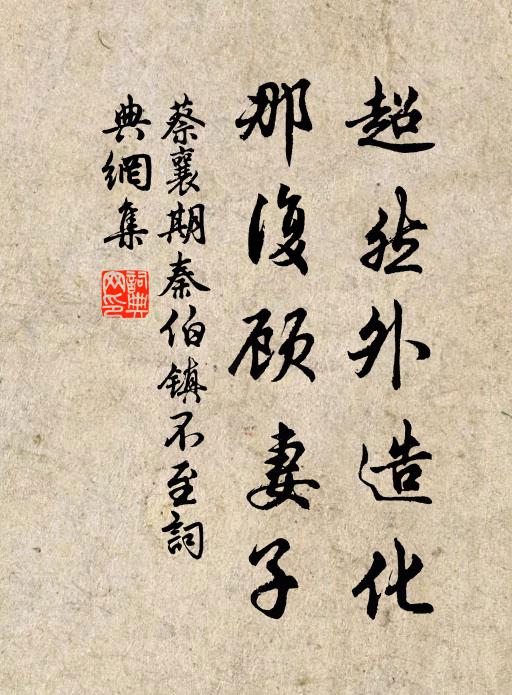 超然外造化
那復顾妻子
蔡襄期秦伯镇不至詞
典網集
詞典网印